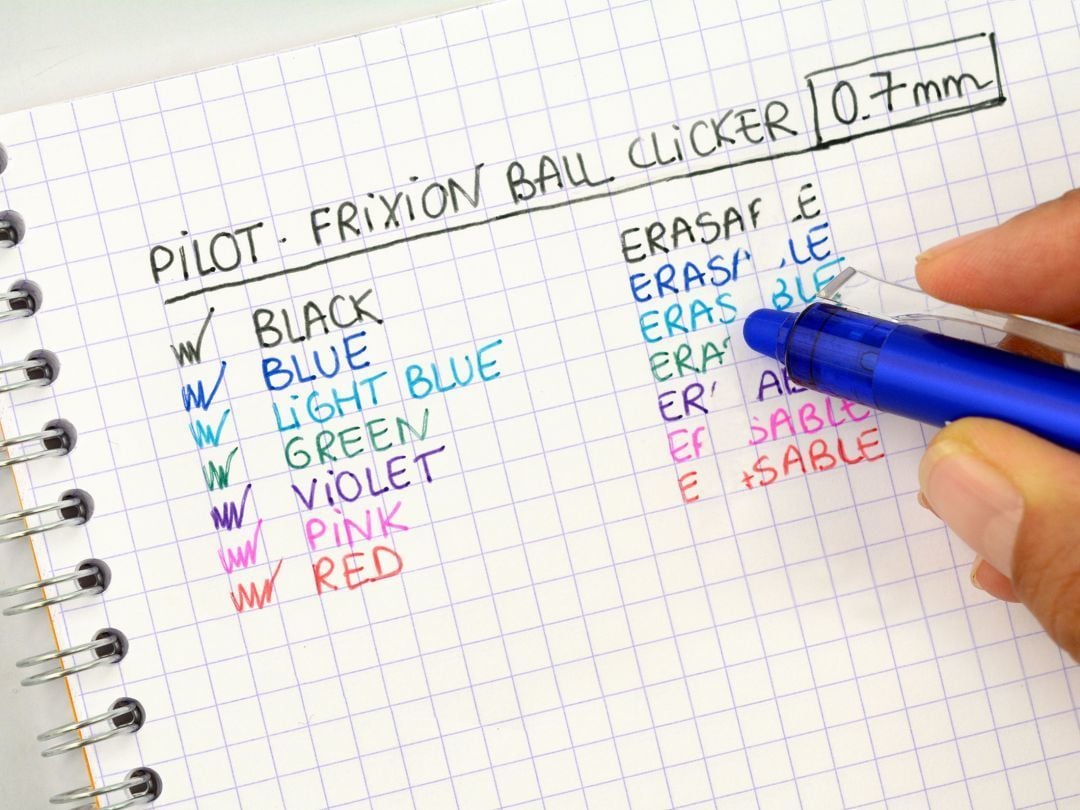 PiLOT. FRiXiON BALL CLiCKER 0.7mm
BLACK
BLUE
LiGHT BLUE
GREEN
ViOLET
PiNK
RED
ERASA E
ERAS LE
ERAS BLE
ERA
ER A
E SABLE
E SABLE